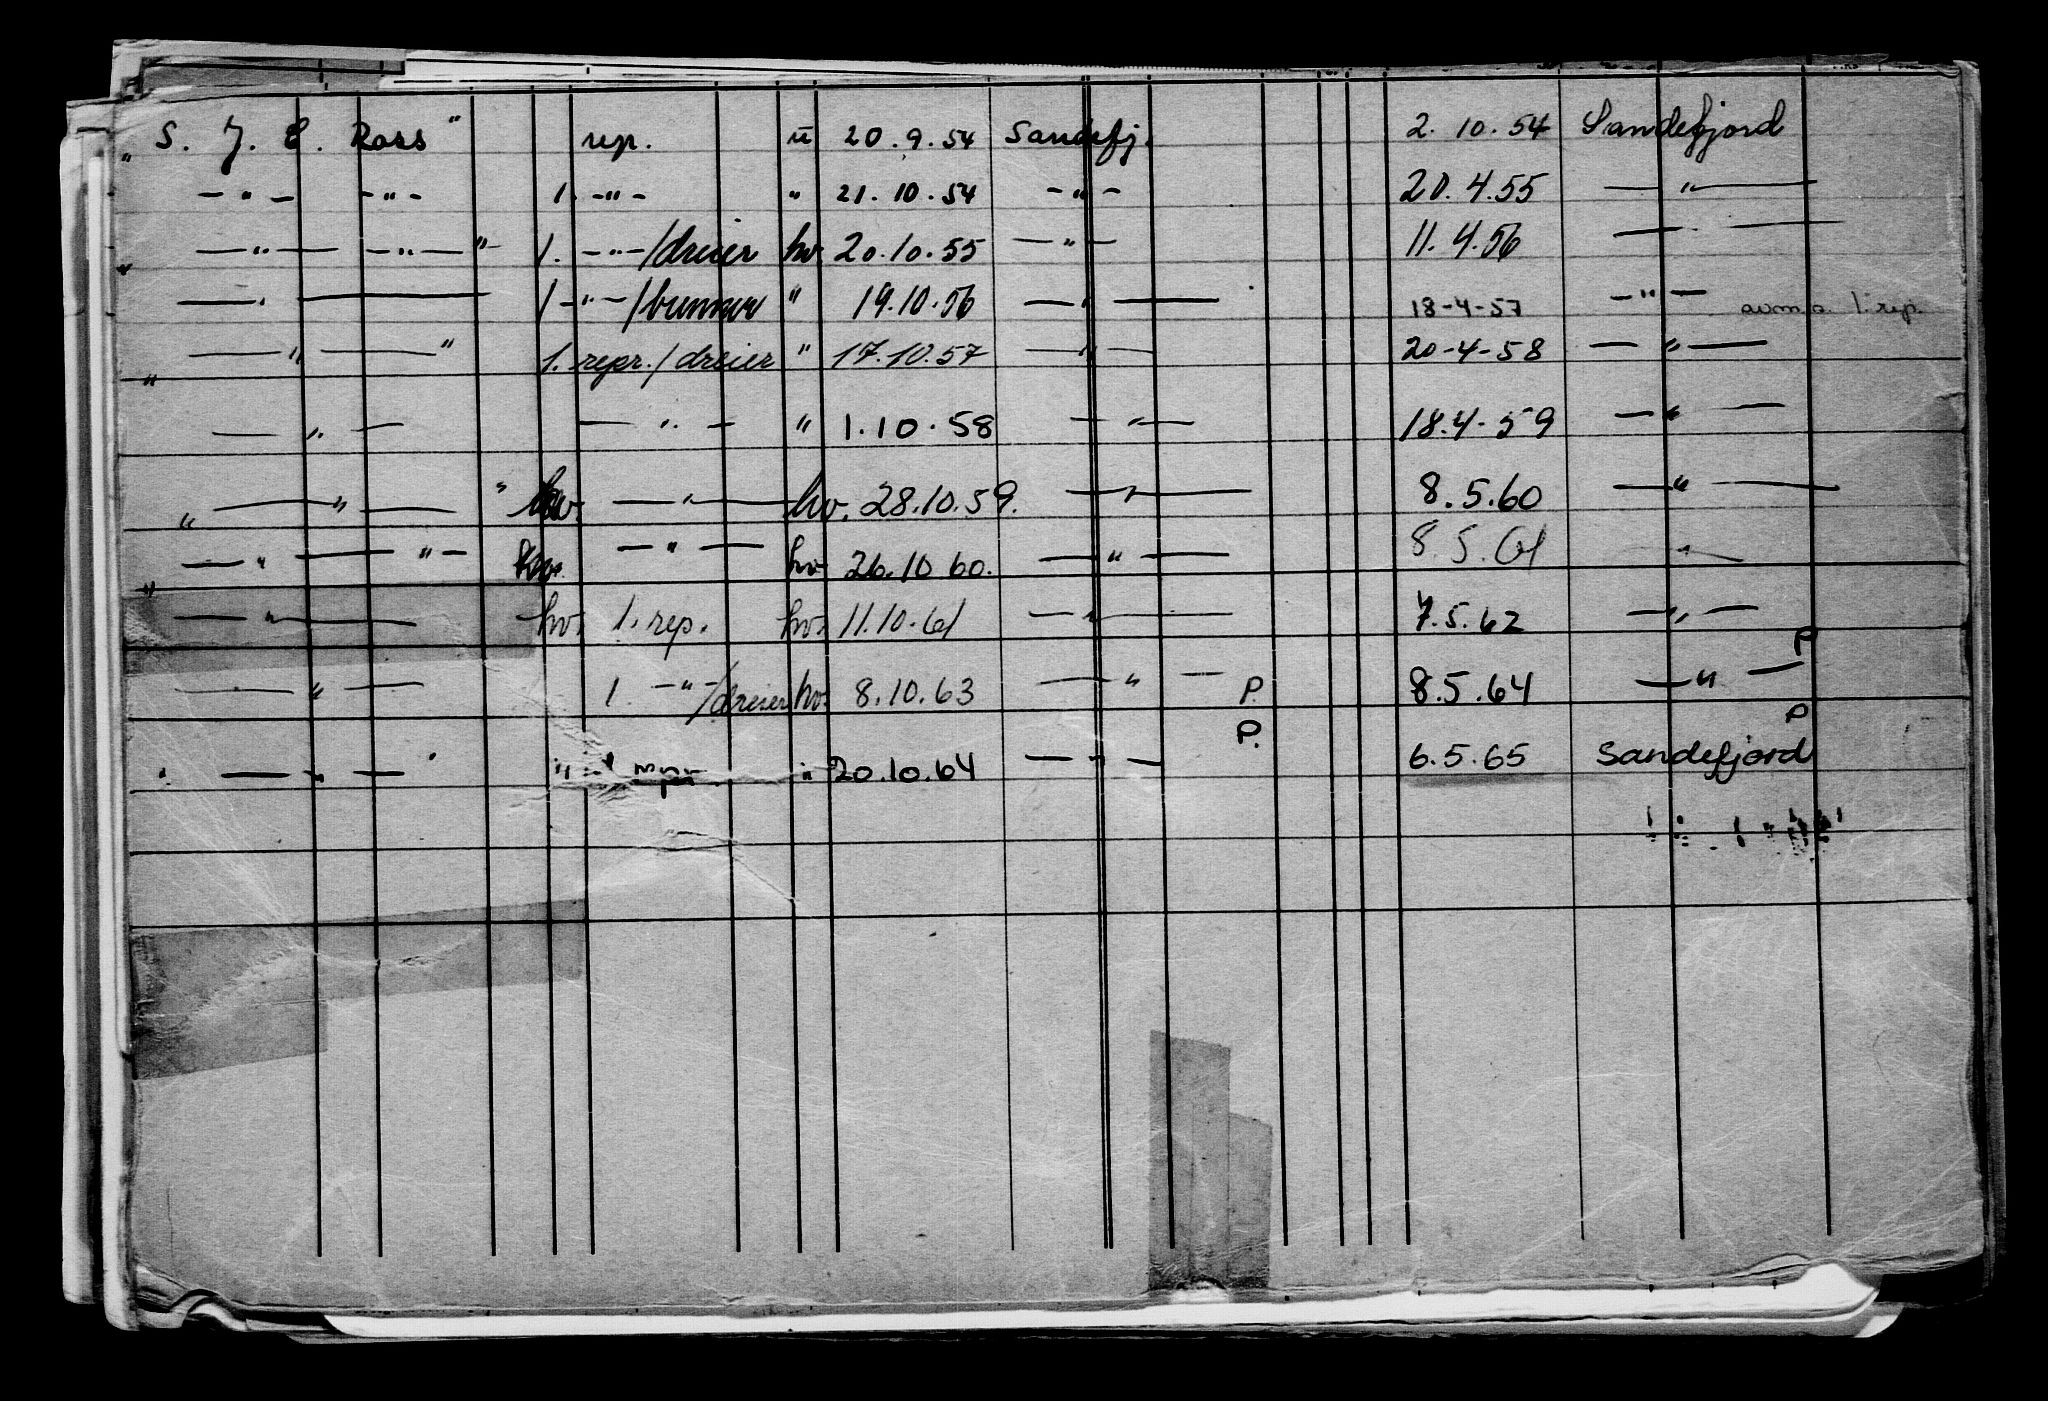 „ S. J. E. Ross " rep. u 20.9.54 Sandefj. 2.10.54 Sandefjord
— " — — " — 1. — " — " 21.10.54 — " — 20.4.55 — " —
„ — " — — " — " 1. — " — / dreier hv. 20.10.55 — " — 11.4.56 — " —
— " — 1 — " — / " 19.10.56 — " — 18-4-57 — " — 1. rep.
„ — " — " 1. repr. / dreier " 17.10.57 — " — 20-4-58 — " —
— " — — " — " 1.10.58 — " — 18.4-59 — " —
„ — " — " hv. — " — hv. 28.10.59. — " — 8.5.60 — " —
„ — " — " — hv. — " — hv. 26.10.60. — " — 8.5.61 — " —
— " — hv. 1. rep. hv. 11.10.61 — " — 7.5.62 — " —
— " — 1. — " — / dreier hv. 8.10.63 — " — P. 8.5.64 — " — P
— " — " 20.10.64 — " — P. 6.5.65 Sandefjord P